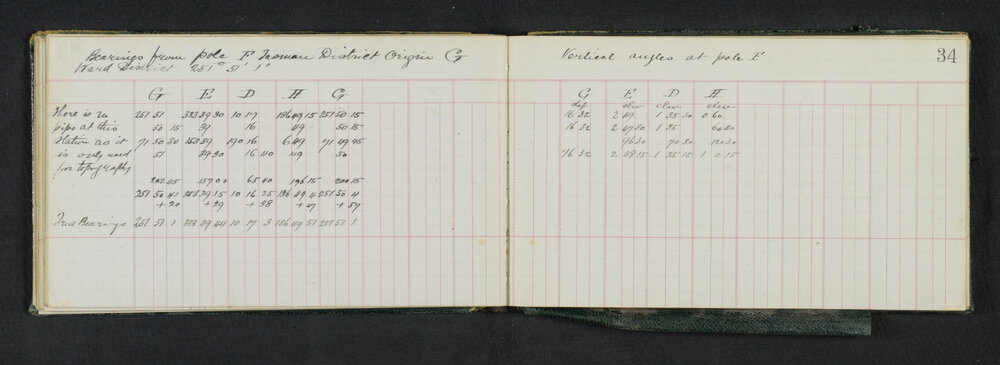 Bearings from pole F Tasman District Origin G
Ward District 251° 51' 1"
G E D H G
There is no 251 51 333 39 30 10 17 186 49 15 251 50 15
pipe at this 50 15 39 16 49 50 15
Station as it 71 50 30 153 39 190 16 6 49 71 49 45
is only used 51 39 30 16 40 49 50
for topography
202 45 157 00 65 40 196 15 200 15
251 50 41 333 39 15 10 16 25 186 49 4 251 50 4
+20 +29 +38 +47 +57
True Bearings 251 51 1 333 39 44 10 17 3 186 49 51 251 51 1
Vertical angles at pole F
34
G E D H
dep elev elev elev
16 32 2 49 1 35 30 0 60
16 32 2 47 30 1 35 60 30
96 30 70 30 120 30
16 32 2 48 15 1 35 15 1 0 15